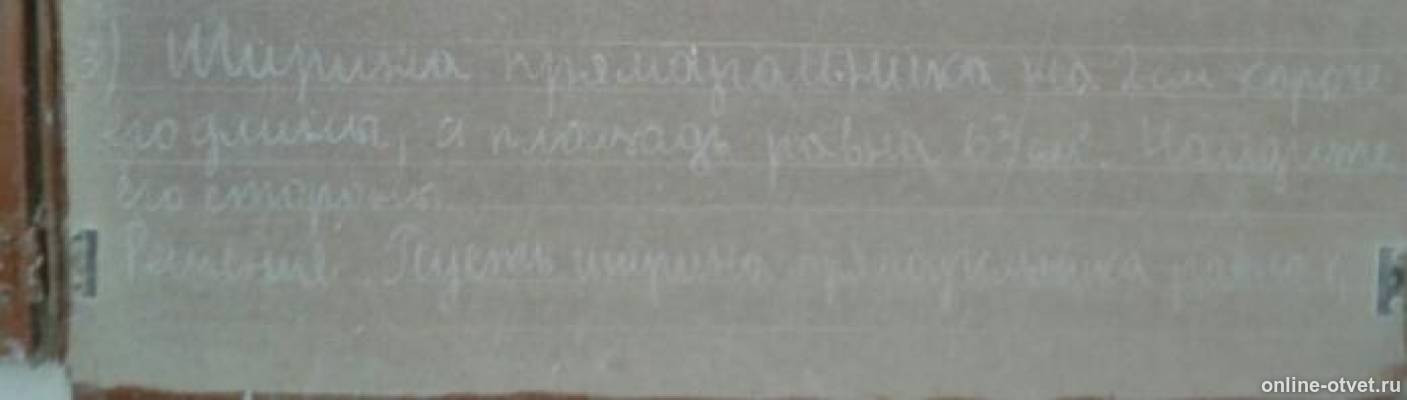 3) Ширина прямоугольника на 2 см короче
его длины, а площадь равна 63 см². Найдите
его стороны.
Решение. Пусть ширина прямоугольника равна
online-otvet.ru